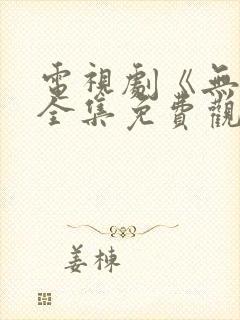 電視劇《無
全集免費觀
姜棟